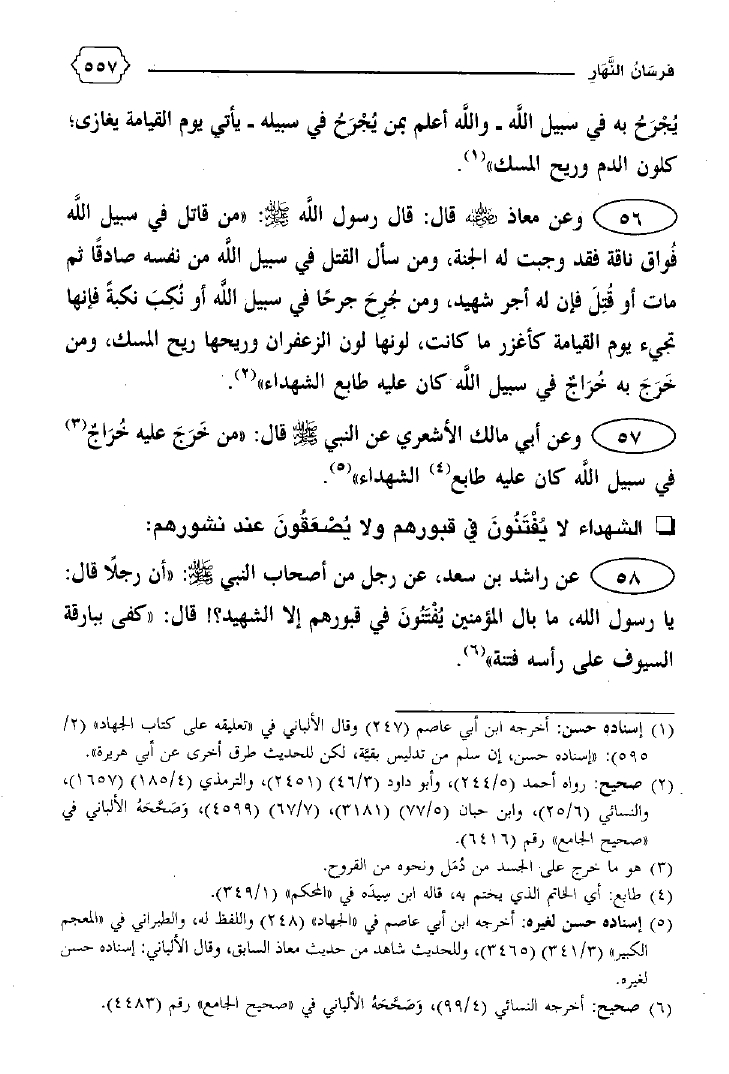 فرسَانُ النَّهَارِ
٥٥٧
يُجْرَحُ به في سبيل اللَّه ـ واللَّه أعلم بمن يُجْرَحُ في سبيله ـ يأتي يوم القيامة يغازى؛
كلون الدم وريح المسك»(١).
٥٦ وعن معاذ رضي الله عنه قال: قال رسول اللَّه ﷺ: «من قاتل في سبيل اللَّه
فُواق ناقة فقد وجبت له الجنة، ومن سأل القتل في سبيل اللَّه من نفسه صادقًا ثم
مات أو قُتِلَ فإن له أجر شهيد، ومن جُرِحَ جرحًا في سبيل اللَّه أو نُكِبَ نكبةً فإنها
تجيء يوم القيامة كأغزر ما كانت، لونها لون الزعفران وريحها ريح المسك، ومن
خَرَجَ به خُرَاجٌ في سبيل اللَّه كان عليه طابع الشهداء»(٢).
٥٧ وعن أبي مالك الأشعري عن النبي ﷺ قال: «من خَرَجَ عليه خُرَاجٌ(٣)
في سبيل اللَّه كان عليه طابع(٤) الشهداء»(٥).
❑ الشهداء لا يُفْتَنُونَ في قبورهم ولا يُصْعَقُونَ عند نشورهم:
٥٨ عن راشد بن سعد، عن رجل من أصحاب النبي ﷺ: «أن رجلًا قال:
يا رسول الله، ما بال المؤمنين يُفْتَنُونَ في قبورهم إلا الشهيد؟! قال: «كفى ببارقة
السيوف على رأسه فتنة»(٦).
(١) إسناده حسن: أخرجه ابن أبي عاصم (٢٤٧) وقال الألباني في «تعليقه على كتاب الجهاد» (٢/
٥٩٥): «إسناده حسن، إن سلم من تدليس بقيَّة، لكن للحديث طرق أخرى عن أبي هريرة».
(٢) صحيح: رواه أحمد (٢٤٤/٥)، وأبو داود (٤٦/٣) (٢٤٥١)، والترمذي (١٨٥/٤) (١٦٥٧)،
والنسائي (٢٥/٦)، وابن حبان (٧٧/٥) (٣١٨١)، (٦٧/٧) (٤٥٩٩)، وَصَحَّحَهُ الألباني في
«صحيح الجامع» رقم (٦٤١٦).
(٣) هو ما خرج على الجسد من دُمَل ونحوه من القروح.
(٤) طابع: أي الخاتم الذي يختم به، قاله ابن سِيدَه في «المحكم» (٣٤٩/١).
(٥) إسناده حسن لغيره: أخرجه ابن أبي عاصم في «الجهاد» (٢٤٨) واللفظ له، والطبراني في «المعجم
الكبير» (٣٤١/٣) (٣٤٦٥)، وللحديث شاهد من حديث معاذ السابق، وقال الألباني: إسناده حسن
لغيره.
(٦) صحيح: أخرجه النسائي (٩٩/٤)، وَصَحَّحَهُ الألباني في «صحيح الجامع» رقم (٤٤٨٣).